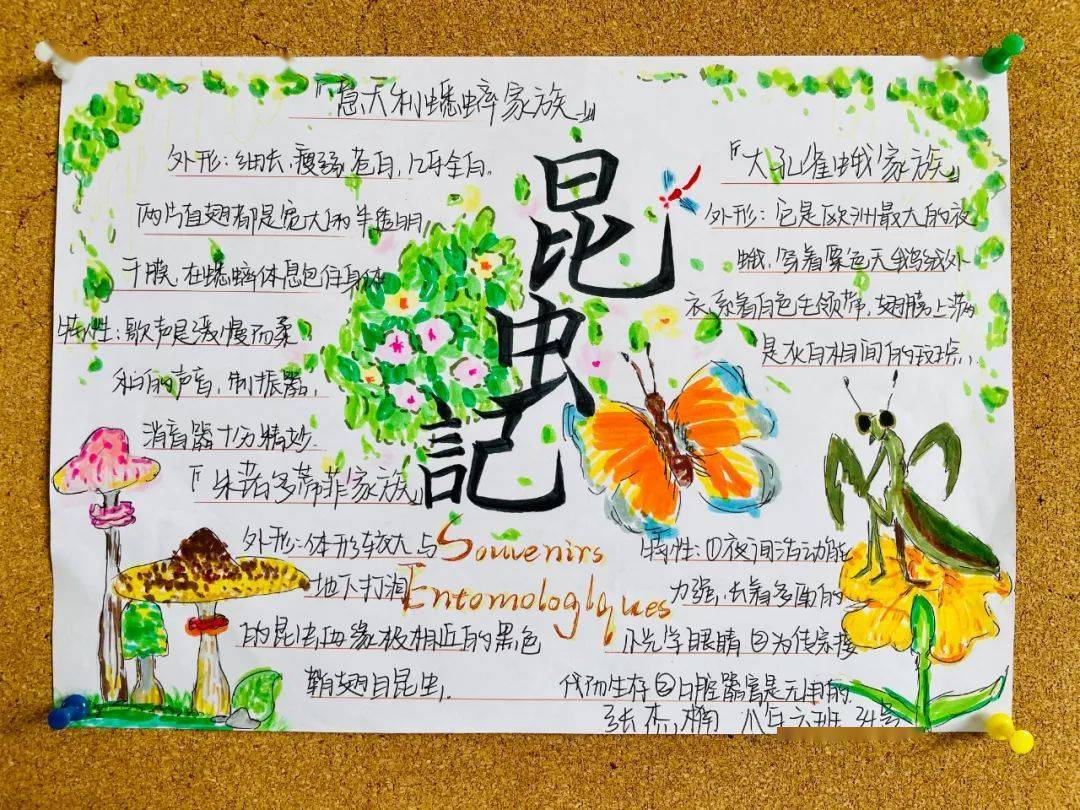 『意大利蟋蟀家族』
外形：细长、瘦弱、苍白，几乎全白。
两片直翅都是宽大的半透明，
干膜，在蟋蟀休息包住身体
特性：歌声是缓慢而柔
和的声音，制振器，
消音器十分精妙.
『朱诺多蒂菲家族』
外形：体形较大与
地下打洞
的昆虫血缘极相近的黑色
鞘翅目昆虫，
昆
虫
記
Souvenirs
EntomologIques
『大孔雀蛾家族』
外形：它是欧洲最大的夜
蛾，穿着栗色天鹅绒外
衣，系着白色毛领带，翅膀上满
是灰白相间的斑点，
特性：①夜间活动能
力强，长着多面的
小光学眼睛②为传宗接
代而生存②口腔器官是无用的
张杰楠 八年六班 34号